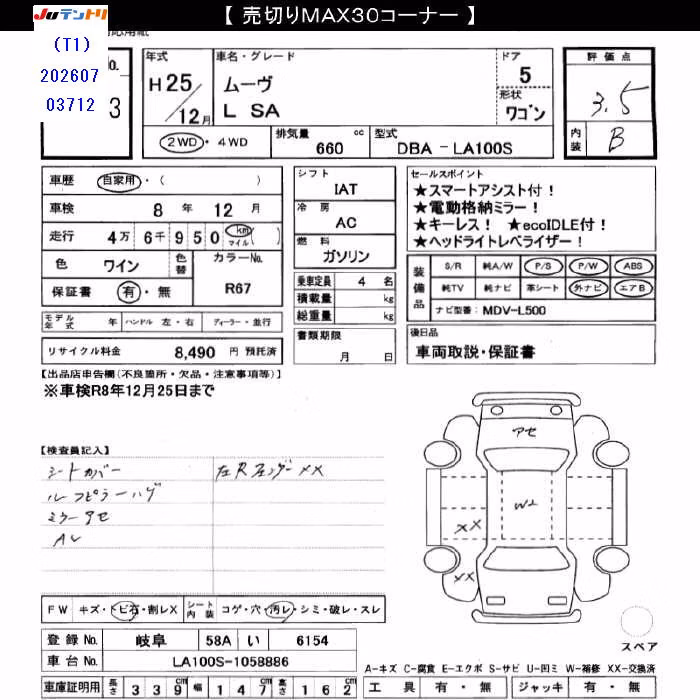 【 売切りMAX30コーナー 】
JUテントリ
(T1)
202607
03712
No.
3
年式
H25/12月
車名・グレード
ムーヴ
L SA
ドア
5
形状
ワゴン
評価点
3.5
内装
B
2WD・4WD
排気量 660 cc
型式 DBA - LA100S
車歴 自家用・( )
車検 8 年 12 月
走行 4万 6千 9 5 0 km マイル ( )
色 ワイン
色替
カラーNo.
R67
保証書 有・無
モデル年式 年 ハンドル 左・右 ディーラー・並行
リサイクル料金 8,490 円 預託済
シフト
IAT
冷房
AC
燃料
ガソリン
乗車定員 4 名
積載量 kg
総重量 kg
書類期限
月 日
セールスポイント
★スマートアシスト付！
★電動格納ミラー！
★キーレス！ ★ecoIDLE付！
★ヘッドライトレベライザー！
装備品
S/R 純A/W P/S P/W ABS
純TV 純ナビ 革シート 外ナビ エアB
ナビ型番： MDV-L500
後日品
車両取説・保証書
【出品店申告欄(不良箇所・欠品・注意事項等)】
※車検R8年12月25日まで
【検査員記入】
シートカバー
ルーフピラーハゲ
ミラーアセ
左Rフェンダー XX
アセ
W2
XX
XX
FW キズ・トビ石・割レX
シート内装 コゲ・穴・汚レ・シミ・破レ・スレ
登録No. 岐阜 58A い 6154
車台No. LA100S-1058886
車庫証明用 長さ 3 3 9 cm 幅 1 4 7 cm 高さ 1 6 2 cm
スペア
A-キズ C-腐食 E-エクボ S-サビ U-凹ミ W-補修 XX-交換済
工具 有・無 ジャッキ 有・無